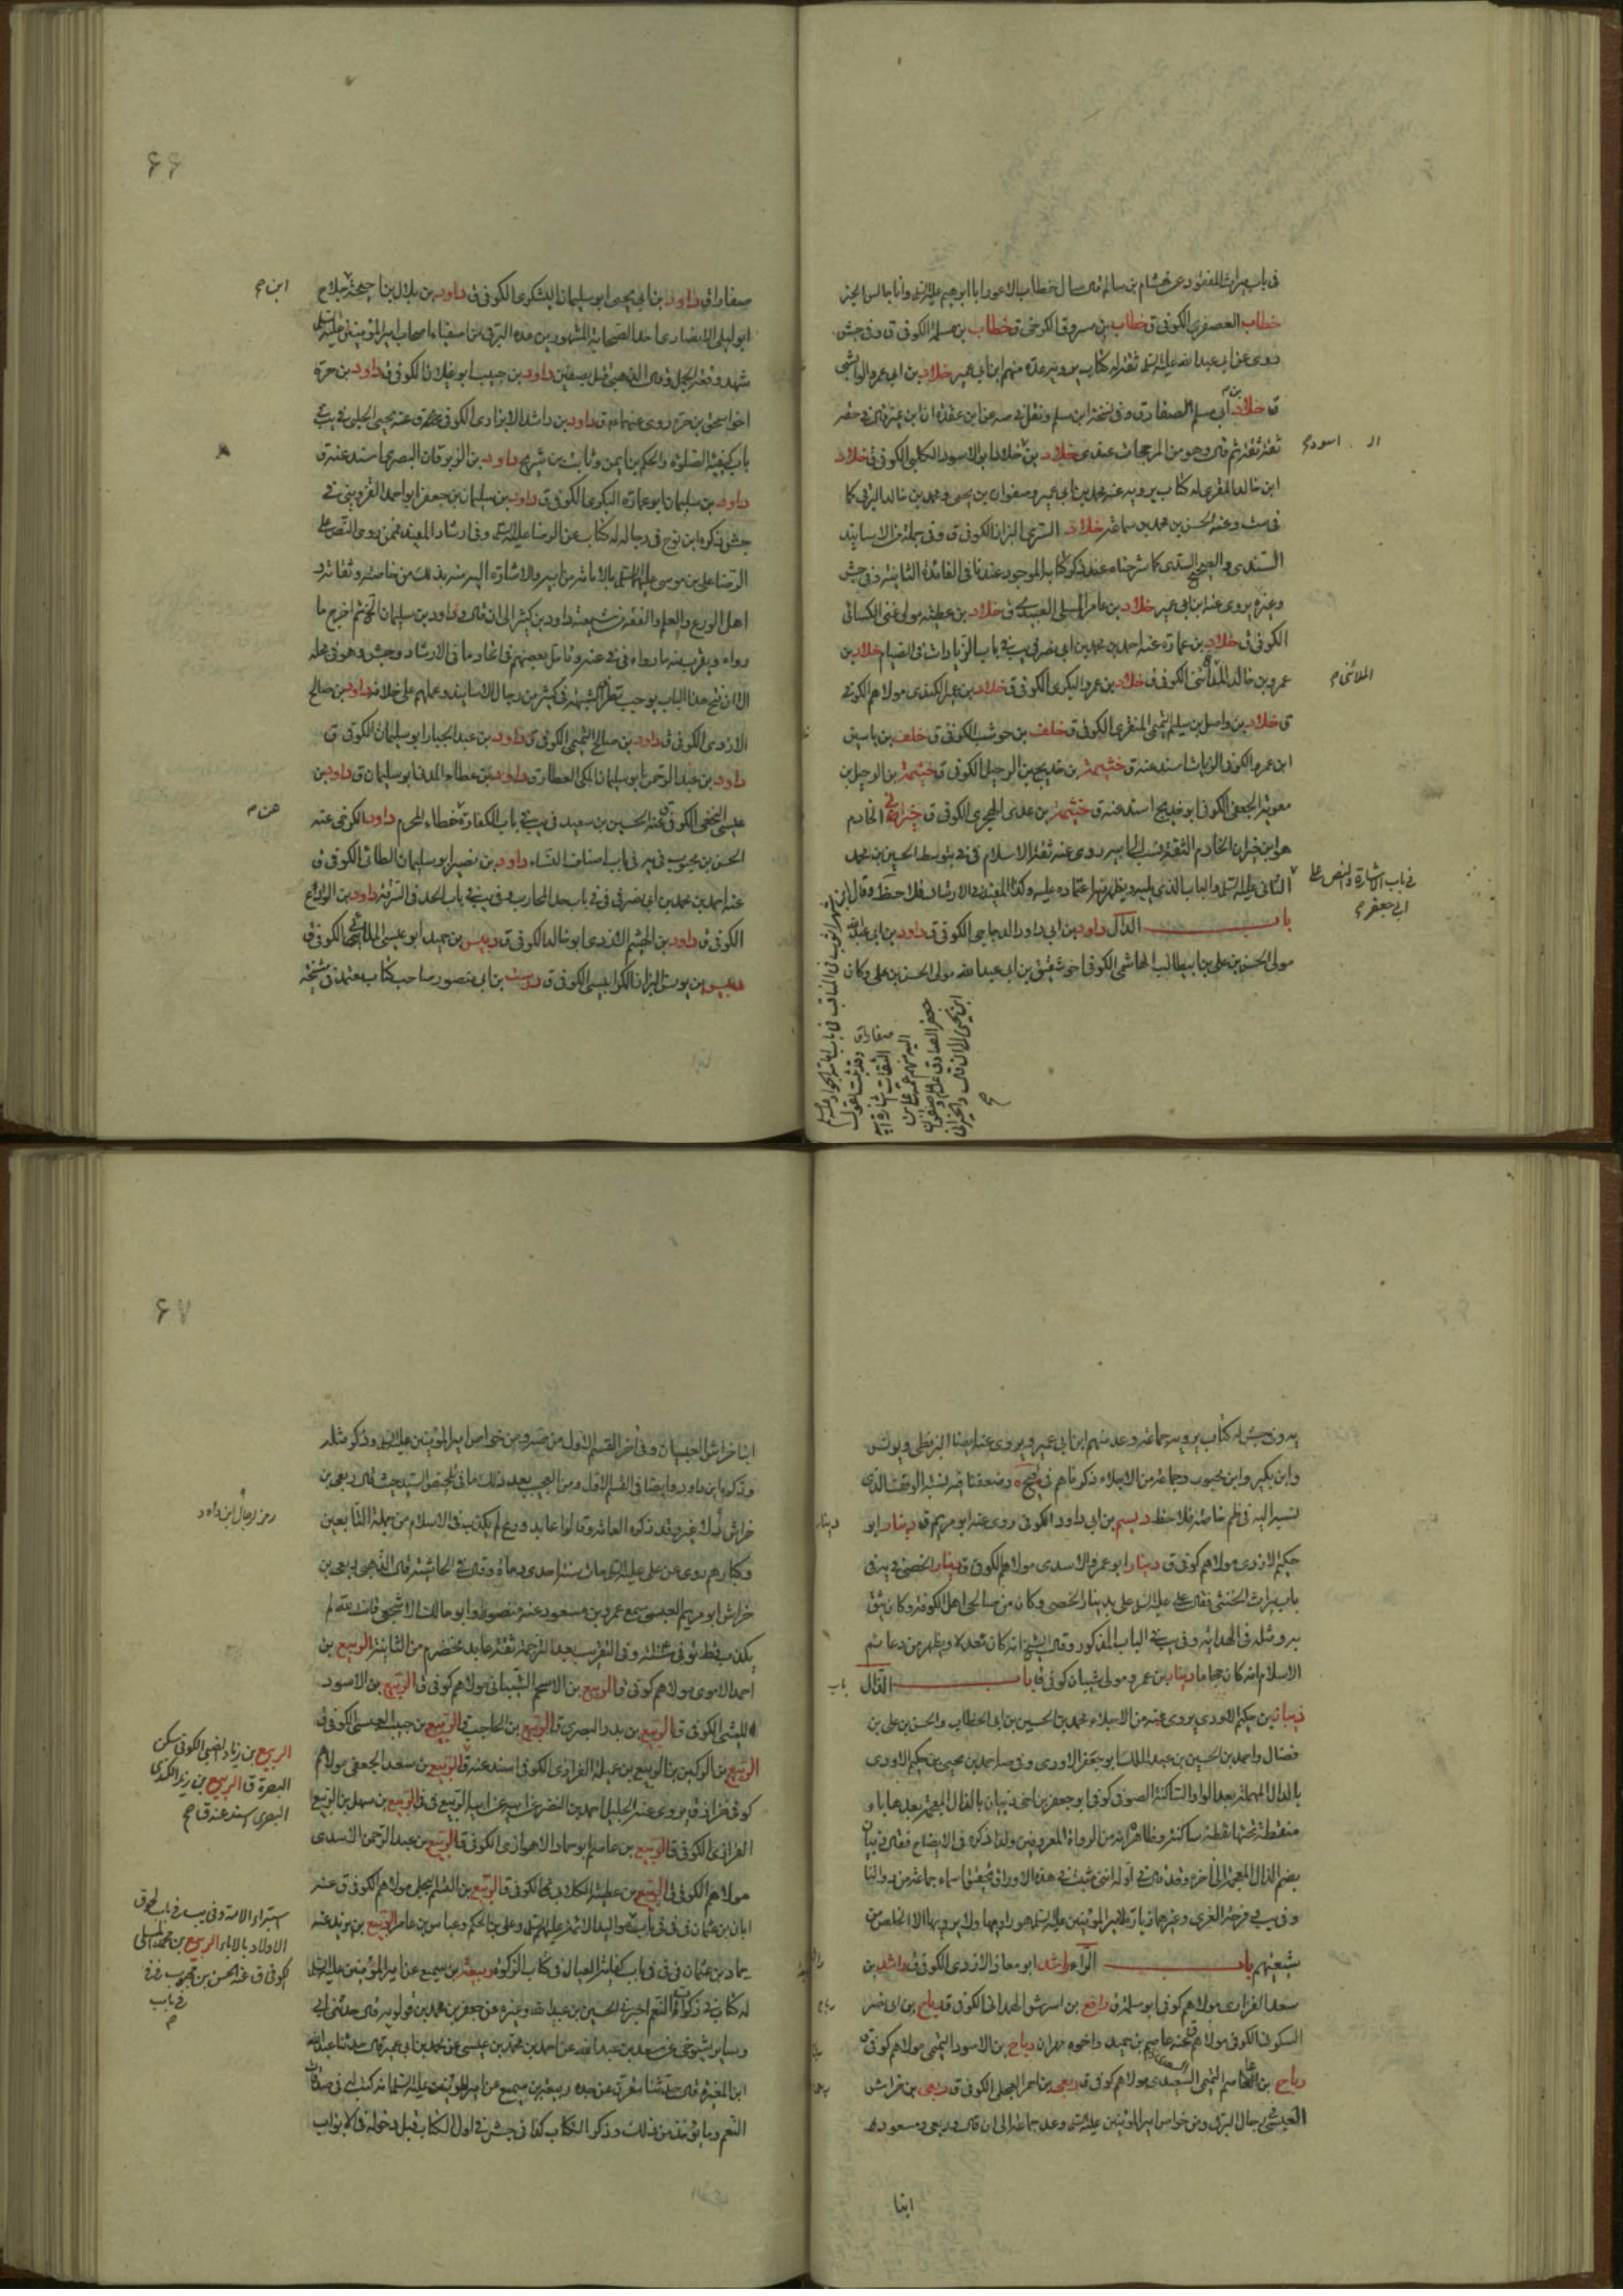 في باب ميراث المفقود عن هشام بن سالم قال سال خطاب الاعور ابا ابراهيم عليه السلام وانا جالس الخبر
خطاب العصفري الكوفي ق خطاب بن مسروق الكرخي ق خطاب بن مسلمة الكوفي ق وفي جش
روى عن ابي عبد الله عليه السلام ثقة له كتاب يرويه عدة منهم ابن ابي عمير خلاد بن ابي عمرو الوابشي
ق خلاد بن ابي مسلم الصفار ق وفي نسخة ابن مسلم ونقل في صه عن ابن عقدة ان ابن عبدة قال في حقه
ثقة ثقة ثم قال وهو من المرجحات عندي خلاد بن خلاد ابو الاسود الكلبي الكوفي ق خلاد
ابن خالد المقري له كتاب يرويه عنه محمد بن ابي عمير وصفوان بن يحيى ومحمد بن خالد البرقي كما
في ست وعنه الحسن بن محمد بن سماعة خلاد السندي البزاز الكوفي ق وفي جملة من الاسانيد
السندي والصحيح السدي كما شرحناه عند ذكر كتابه الموجود عندنا في الفائدة الثانية وفي جش
وغيره يروي عنه ابن ابي عمير خلاد بن عامر المسلي العبسي ق خلاد بن عطية مولى غني الكسائي
الكوفي ق خلاد بن عمارة عنه احمد بن محمد بن ابي نصر في يب في باب الزيادات في الصيام خلاد بن
عمرو بن خالد الكوفي ق خلاد بن عمرو البكري الكوفي ق خلاد بن عمير الكندي مولاهم الكوفي
ق خلاد بن واصل بن سليم التميمي المنقري الكوفي ق خلف بن حوشب الكوفي ق خلف بن ياسين
ابن عمرو الكوفي الزيات اسند عنه ق خثيمة بن خديج بن الرحيل الكوفي ق خثيمة بن الرحيل بن
معوية الجعفي الكوفي ابو خديج اسند عنه ق خثيمة بن عدي الهجري الكوفي ق خيراني الخادم
هو ابن خيران الخادم الثقة نسب الى ابيه روى عنه ثقة الاسلام في في بتوسط الحسين بن محمد
الثاني عليه السلام والباب الذي يليه ويظهر منها اعتماده عليه وكذا المفيد في الارشاد فلاحظ وقال ابن
باب الدال داود بن ابي داود الدجاجي الكوفي ق داود بن ابي عبد الله
مولى الحسن بن علي بن ابي طالب الهاشمي الكوفي اخو شقيق بن ابي عبد الله مولى الحسن بن علي وكان
اسود
الملائي
في باب الاشارة والنص على
ابي جعفر
شهراشوب في المناقب في باب امامة الجواد عليه السلام
۶۶
صفارا ق داود بن ابي يحيى ابو سليمان اليشكري الكوفي ق داود بن بلال بن احيحة
ابو ليلى الانصاري احد الصحابة المشهورين عده البرقي من اصفياء اصحاب امير المؤمنين عليه السلام
شهد وقعة الجمل وقال الذهبي قتل بصفين داود بن حبيب ابو غيلان الكوفي ق داود بن حرة
اخو اسحق بن حرة روى عنهما ق داود بن راشد الابزاري الكوفي ق عنه يحيى الحلبي في يب في
باب كيفية الصلوة والحكم بن ايمن وثابت بن شريح داود بن الزبرقان البصري اسند عنه ق
داود بن سليمان ابو عمارة البكري الكوفي ق داود بن سليمان بن جعفر ابو احمد القزويني في
جش ذكره ابن نوح في رجاله له كتاب عن الرضا عليه السلام وفي ارشاد المفيد فممن روى النص على
الرضا علي بن موسى عليهما السلام بالامامة من ابيه والاشارة اليه منه بذلك من خاصته وثقاته و
اهل الورع والعلم والفقه من شيعته داود بن كثير الى ان قال وداود بن سليمان ثم اخرج ما
رواه ويقرب منها رواه في في عنه وتامل بعضهم في اتحاد ما في الارشاد وجش وهو في محله
الا ان فتح هذا الباب يوجب تطرق الشبهة في كثير من رجال الاسانيد وعملهم على خلافه داود بن صالح
الازدي الكوفي ق داود بن صالح التميمي الكوفي ق داود بن عبد الجبار ابو سليمان الكوفي ق
داود بن عبد الرحمن ابو سليمان المكي العطار ق داود بن عطاء المدني ابو سليمان ق داود بن
عيسى النخعي الكوفي ق عنه الحسين بن سعيد في يب في باب الكفارة عن خطاء المحرم داود الكوفي عنه
الحسن بن محبوب في يه في باب اصناف النساء داود بن نصير ابو سليمان الطائي الكوفي ق
عنه احمد بن محمد بن ابي نصر في في في باب حد المحارب وفي يب في باب الحد في السرقة داود بن الوارع
الكوفي ق داود بن الهيثم الازدي ابو خالد الكوفي ق دبيس بن حميد ابو عيسى الملائي الكوفي ق
دبيس بن يونس البزاز الكرابيسي الكوفي ق درست بن ابي منصور صاحب كتاب معتمد في مشيخة
ابن
يه وفي جش له كتاب يرويه جماعة وعد منهم ابن ابي عمير ويروي عنه ايضا البزنطي ويونس
وابن بكير وابن محبوب وجماعة من الاجلاء ذكرناهم في وضعفنا فيه نسبة الوقف الذي
نسبه اليه في ظم خاصة فلاحظ ديسم بن ابي داود الكوفي روى عنه ابو مريم ق دينار ابو
حكيم الازدي مولاهم كوفي ق دينار ابو عمرو الاسدي مولاهم الكوفي ق دينار الخصي في يه في
باب ميراث الخنثى فقال علي عليه السلام علي بدينار الخصي وكان من صالحي اهل الكوفة وكان يثق
به ومثله في الهداية وفي يب في الباب المذكور وقال الشيخ انه كان معدلا ويظهر من دعائم
الاسلام انه كان حجاما دينار بن عمرو مولى شيبان كوفي ق باب الذال
ذبيان بن حكيم الاودي يروي عنه من الاجلاء محمد بن الحسين بن ابي الخطاب والحسن بن علي بن
فضال واحمد بن الحسين بن عبد الملك ابو جعفر الاودي وفي صه احمد بن يحيى بن حكيم الاودي
بالدال المهملة بعد الواو الساكنة الصوفي كوفي ابو جعفر بن اخي ذبيان بالذال المعجمة بعدها باء
منقطة تحتها نقطة ساكنة وظاهره انه من الرواة المعروفين ولذا ذكره في الايضاح فقال ذبيان
بضم الذال المعجمة الى آخره وقد قال في اوله انني مثبت في هذه الاوراق تحقيق اسماء جماعة من رواتنا
وفي يب في فرحة الغري وغيرهما زيارة لامير المؤمنين عليه السلام هو راويها ولا يرويها الا الخلص من
شيعتهم باب الراء راشد ابو معاذ الازدي الكوفي ق راشد بن
سعد الفزاري مولاهم كوفي ابو سلمة ق رافع بن اشرس الهمداني الكوفي ق رباح بن ابي نصر
السكوني الكوفي مولاهم عنه عاصم بن حميد واخوه مهران رباح بن الاسود التميمي مولاهم كوفي ق
رباح بن عاصم التميمي السعدي مولاهم كوفي ق ربعي بن احمر العجلي الكوفي ق ربعي بن خراش
العبسي في رجال البرقي ومن خواص امير المؤمنين عليه السلام وعد جماعة الى ان قال وربعي ومسعود
ابنا
۶۷
ابنا خراش العبسيان وفي آخر القسم الاول من صه ومن خواص امير المؤمنين عليه السلام وذكر مثله
وذكره ابن داود ايضا في القسم الاول ومن العجيب بعد ذلك ما في ملخص السيد حيث قال ربعي بن
خراش غيره وقد ذكره العامة وقالوا عابد ورع لم يكذب في الاسلام من جلة التابعين
وكبارهم روى عن علي عليه السلام مات سنة احدى ومأة وقال في الحاشية قال الذهبي ربعي بن
خراش ابو مريم العبسي سمع عمر وبن مسعود عنه منصور وابو مالك الاشجعي قانت لله لم
يكذب قط توفي سنة وفي التقريب بعد الترجمة ثقة عابد مخضرم من الثانية الربيع بن
احمد الاموي مولاهم كوفي ق الربيع بن الاسحم الشيباني مولاهم كوفي ق الربيع بن الاسود
الليثي الكوفي ق الربيع بن بدر البصري ق الربيع بن الحاجب ق الربيع بن حبيب العبسي الكوفي ق
الربيع بن الركين بن الربيع بن عميلة الفزاري الكوفي اسند عنه ق الربيع بن سعد الجعفي مولاهم
كوفي خزاز ق يروي عنه الجليل احمد بن النضر عن ابيه الربيع في في الربيع بن سهل بن الربيع
الفزاري الكوفي ق الربيع بن عاصم ابو حماد الاهوازي الكوفي ق الربيع بن عبد الرحمن الاسدي
مولاهم الكوفي ق الربيع بن عطية الكلابي الكوفي ق الربيع بن القسم البجلي مولاهم الكوفي ق عنه
ابان بن عثمان في في في باب مواليد الائمة عليهم السلام وعلي بن الحكم وعباس بن عامر الربيع بن يزيد عنه
حماد بن عثمان في في في باب كفاية العيال في كتاب الزكوة ربيعة بن سميع عن امير المؤمنين عليه السلام
له كتاب في زكوات النعم اخبرني الحسين بن عبيد الله وغيره عن جعفر بن محمد بن قولويه قال حدثني ابي
وساير شيوخي عن سعد بن عبد الله عن احمد بن محمد بن عيسى عن محمد بن ابي عمير قال حدثنا عبد الله
ابن المغيرة قال حدثنا مقرن عن جده ربيعة بن سميع عن امير المؤمنين عليه السلام انه كتب له في صدقات
النعم وما يؤخذ من ذلك وذكر الكتاب كذا في جش في اول الكتاب قبل دخوله في الابواب
رمز رجال ابن داود
الربيع بن زياد الضبي الكوفي سكن
البصرة ق الربيع بن زيد الكندي
البصري اسند عنه ق
استبراء الامة وفي يب في باب لحوق
الاولاد بالاباء الربيع بن محمد المسلي
كوفي ق عنه الحسن بن محبوب في
في باب